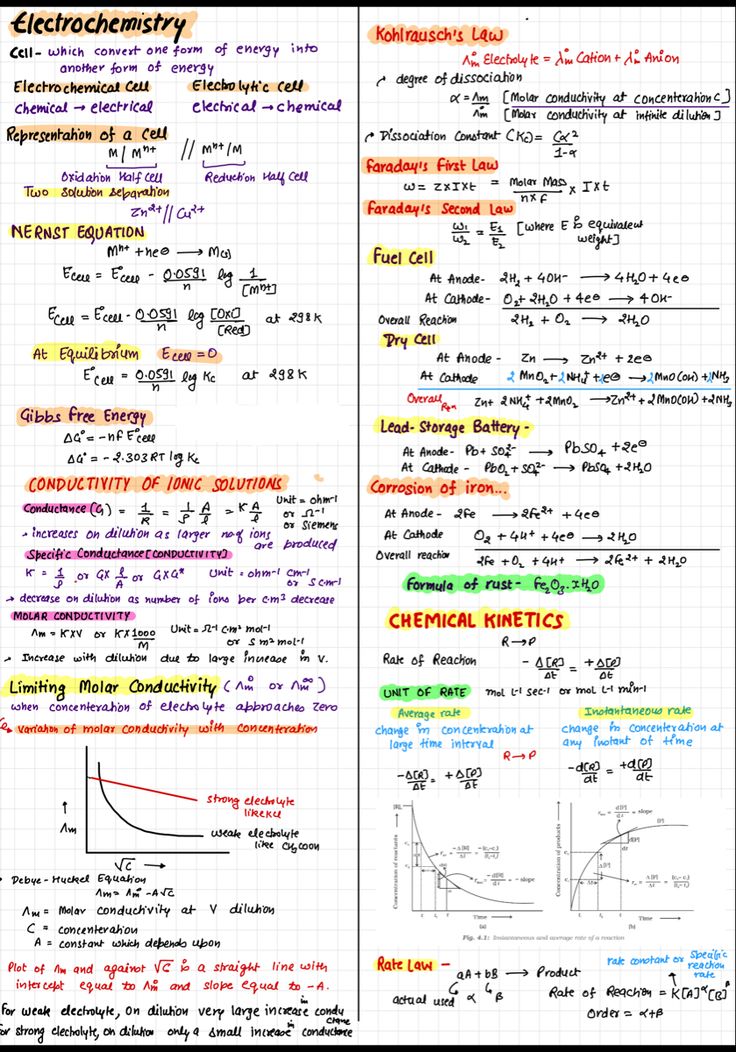 Electrochemistry
Cell - which convert one form of energy into
another form of energy
Electrochemical Cell Electrolytic Cell
chemical → electrical electrical → chemical
Representation of a cell
M / Mⁿ⁺ // Mⁿ⁺ / M
Oxidation Half Cell Reduction Half Cell
Two solution separation
Zn²⁺ // Cu²⁺
NERNST EQUATION
Mⁿ⁺ + ne⊖ → M(s)
Ecell = E°cell - 0.0591/n log 1/[Mⁿ⁺]
Ecell = E°cell - 0.0591/n log [Oxi]/[Red] at 298K
At Equilibrium Ecell = 0
E°cell = 0.0591/n log Kc at 298K
Gibbs Free Energy
ΔG° = -nF E°cell
ΔG° = -2.303RT log Kc
CONDUCTIVITY OF IONIC SOLUTIONS
Conductance (G) = 1/R = 1/ρ A/l = K A/l Unit = ohm⁻¹
or Ω⁻¹
or Siemens
• increases on dilution as larger no. of ions
are produced
Specific Conductance [CONDUCTIVITY]
K = 1/ρ or G× l/A or G×G* Unit = ohm⁻¹ cm⁻¹
or S cm⁻¹
→ decrease on dilution as number of ions per cm³ decrease
MOLAR CONDUCTIVITY
Λm = K×V or K×1000/M Unit = Ω⁻¹ cm² mol⁻¹
or S m² mol⁻¹
→ Increase with dilution due to large increase in V.
Limiting Molar Conductivity (Λ°m or Λ∞m)
when concenteration of electrolyte approaches zero
variation of molar conductivity with Concenteration
↑
Λm
strong electrolyte
like KCl
weak electrolyte
like CH₃COOH
√C →
Debye-Huckel Equation
Λm = Λ°m - A√C
Λm = Molar conductivity at V dilution
C = concenteration
A = constant which depends upon
Plot of Λm and against √C is a straight line with
intercept equal to Λ°m and slope equal to -A.
For weak electrolyte, on dilution very large increase in condu
ctance
For strong electrolyte, on dilution only a small increase in conductance
Kohlrausch's Law
Λ°m Electrolyte = λ°m Cation + λ°m Anion
degree of dissociation
α = Λm [Molar conductivity at concenteration C]
Λ°m [Molar conductivity at infinite dilution]
Dissociation Constant (Kc) = Cα²/1-α
Faraday's First Law
W = Z×I×t = Molar Mass/n×F × I×t
Faraday's Second Law
W₁/W₂ = E₁/E₂ [where E is equivalent
weight]
Fuel Cell
At Anode - 2H₂ + 4OH⁻ → 4H₂O + 4e⊖
At Cathode - O₂ + 2H₂O + 4e⊖ → 4OH⁻
Overall Reaction 2H₂ + O₂ → 2H₂O
Dry Cell
At Anode - Zn → Zn²⁺ + 2e⊖
At Cathode 2MnO₂ + 2NH₄⁺ + 2e⊖ → 2MnO(OH) + 2NH₃
Overall Rxn Zn + 2NH₄⁺ + 2MnO₂ → Zn²⁺ + 2MnO(OH) + 2NH₃
Lead-Storage Battery -
At Anode - Pb + SO₄²⁻ → PbSO₄ + 2e⊖
At Cathode - PbO₂ + SO₄²⁻ → PbSO₄ + 2H₂O
Corrosion of iron...
At Anode - 2Fe → 2Fe²⁺ + 4e⊖
At Cathode O₂ + 4H⁺ + 4e⊖ → 2H₂O
Overall reaction 2Fe + O₂ + 4H⁺ → 2Fe²⁺ + 2H₂O
Formula of rust - Fe₂O₃.xH₂O
CHEMICAL KINETICS
R → P
Rate of Reaction - Δ[R]/Δt = +Δ[P]/Δt
UNIT OF RATE mol L⁻¹ sec⁻¹ or mol L⁻¹ min⁻¹
Average rate Instantaneous rate
change in concenteration at change in concenteration at
large time interval any instant of time
R → P
-Δ[R]/Δt = +Δ[P]/Δt -d[R]/dt = +d[P]/dt
Concentration of reactants
Time →
(a)
Concentration of products
Time →
(b)
Fig. 4.1: Instantaneous and average rate of a reaction
Rate Law -
aA + bB → Product
actual used α β
rate constant or Specific
reaction
rate
Rate of Reaction = K[A]^α [B]^β
Order = α+β